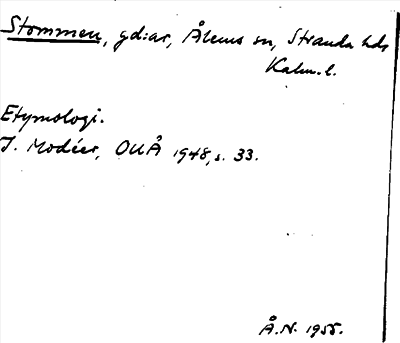 Stommen, gd:ar, Ålems sn, Stranda hds
Kalm. l.
Etymologi.
I. Modéer, OUÅ 1948, s. 33.
Å.N. 1955.